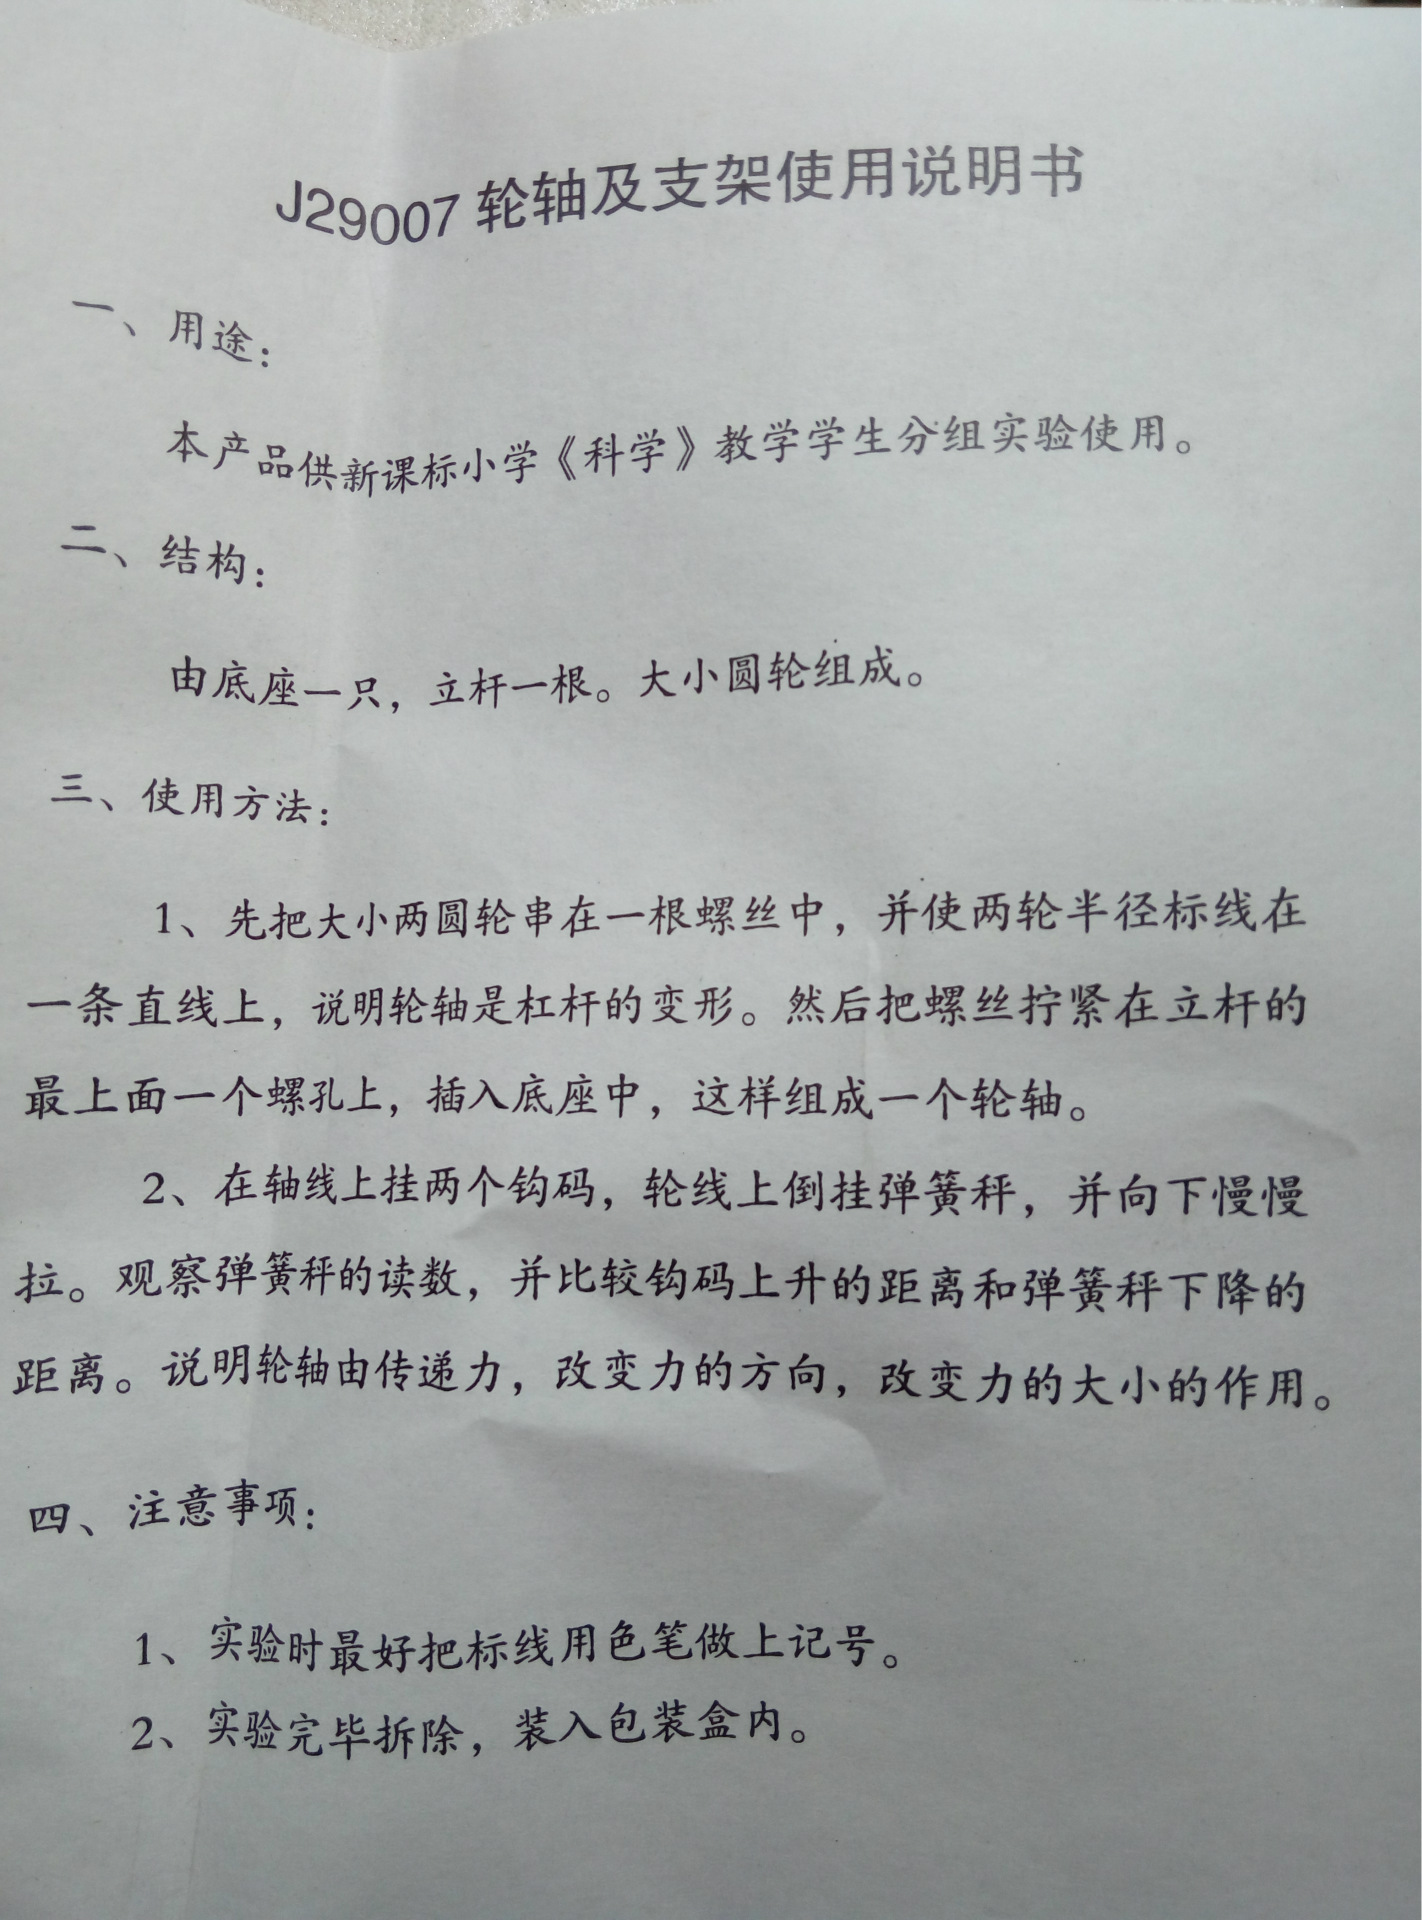 J29007轮轴及支架使用说明书
一、用途：
本产品供新课标小学《科学》教学学生分组实验使用。
二、结构：
由底座一只，立杆一根。大小圆轮组成。
三、使用方法：
1、先把大小两圆轮串在一根螺丝中，并使两轮半径标线在
一条直线上，说明轮轴是杠杆的变形。然后把螺丝拧紧在立杆的
最上面一个螺孔上，插入底座中，这样组成一个轮轴。
2、在轴线上挂两个钩码，轮线上倒挂弹簧秤，并向下慢慢
拉。观察弹簧秤的读数，并比较钩码上升的距离和弹簧秤下降的
距离。说明轮轴由传递力，改变力的方向，改变力的大小的作用。
四、注意事项：
1、实验时最好把标线用色笔做上记号。
2、实验完毕拆除，装入包装盒内。